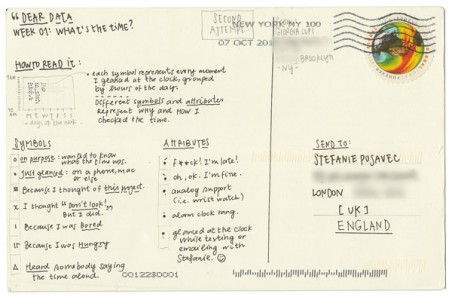 " DEAR DATA
WEEK 01: WHAT'S THE TIME?
HOW TO READ IT:
• each symbol represents every moment
I glanced at the clock, grouped
by hours of the day.
Different symbols and attributes
represent why and how I
checked the time.
- days of the week
SYMBOLS
on purpose: wanted to know
what time was.
Just glanced: on a phone, mac
or else
# Because I thought of this project.
x I thought "Don't look!"
But I did.
! Because I was Bored
Because I was Hungry
△ Heard somebody saying
the time aloud.
ATTRIBUTES
f**ck! I'm late!
oh, ok. I'm fine.
analog support
(i.e. wrist watch)
alarm clock rang.
glanced at the clock
while texting or
emailing with
Stefanie. ☺
SECOND
ATTEMPT
NEW YORK NY 100
07 OCT 201
GIORGIA LUPI
BROOKLYN
- NY -
SEND TO:
STEFANIE POSAVEC
LONDON
[UK]
ENGLAND